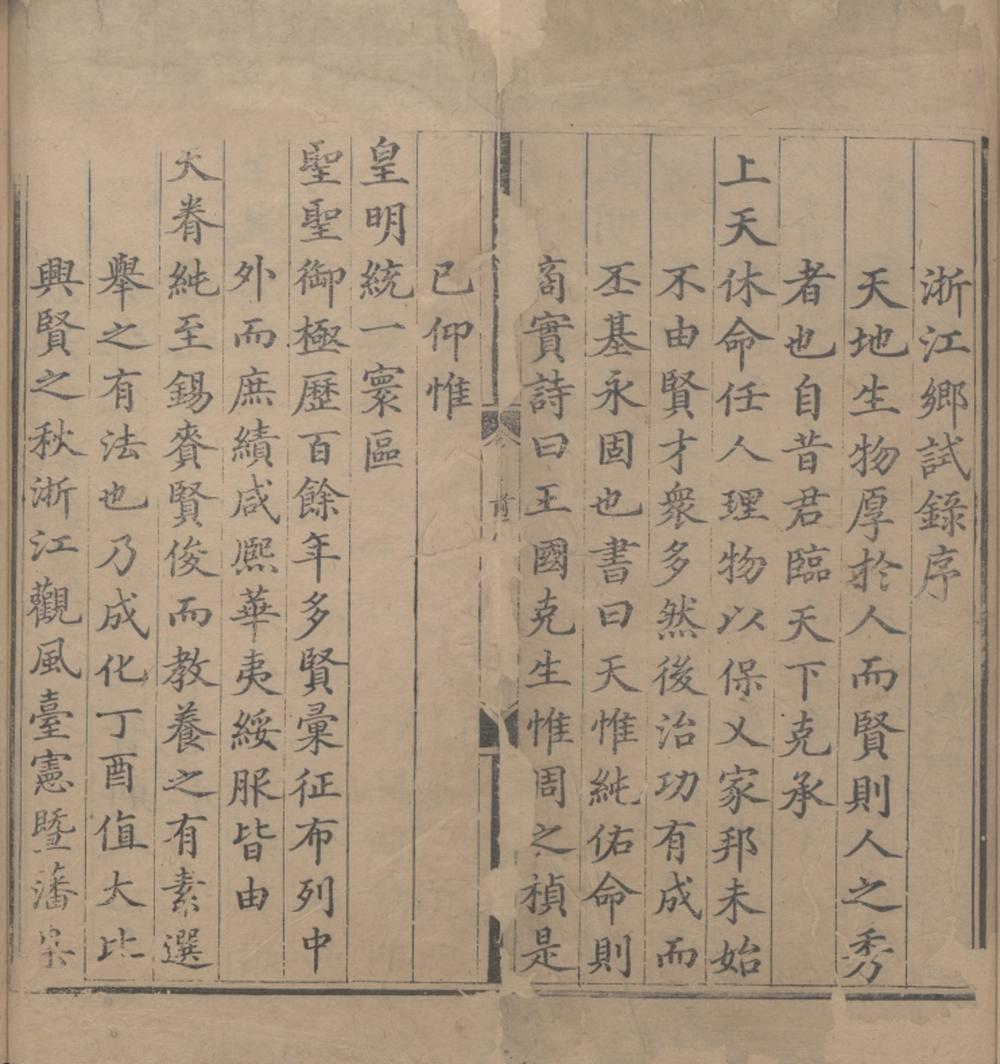 浙江鄉試錄序
天地生物厚於人而賢則人之秀
者也自昔君臨天下克承
上天休命任人理物以保乂家邦未始
不由賢才衆多然後治功有成而
丕基永固也書曰天惟純佑命則
商實詩曰王國克生惟周之禎是
已仰惟
皇明統一寰區
聖聖御極歷百餘年多賢彙征布列中
外而庶績咸熙華夷綏服皆由
天眷純至錫賚賢俊而教養之有素選
舉之有法也乃成化丁酉值大比
興賢之秋浙江觀風臺憲暨藩臬